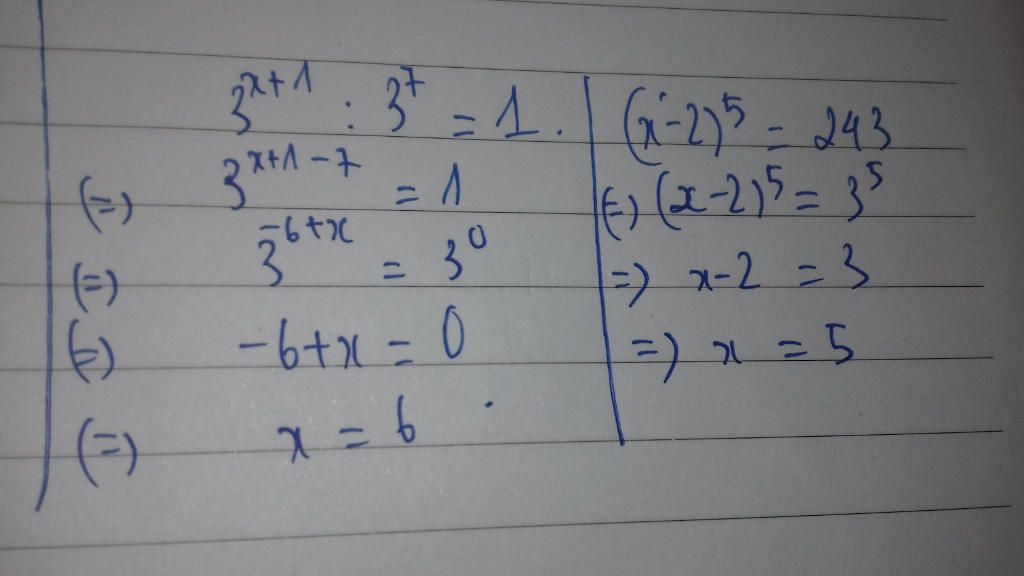 3^{x+1} : 3^7 = 1.
(=) 3^{x+1-7} = 1
(=) 3^{-6+x} = 3^0
(=) -6+x = 0
(=) x = 6
(x-2)^5 = 243
(=) (x-2)^5 = 3^5
=) x-2 = 3
=) x = 5